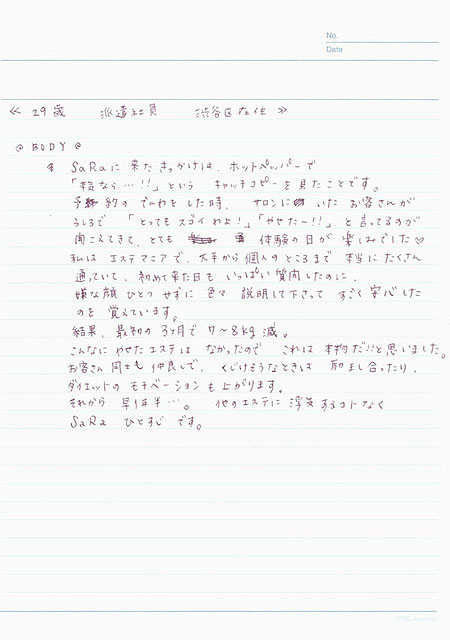 No.
Date
≪ 29歳 派遣社員 渋谷区在住 ≫
@ BODY @
SaRaに来たきっかけは、ホットペッパーで
「本気なら…!!」という キャッチコピーを見たことです。
予約の でんわをした時、サロンに いた お客さんが
うしろで 「とってもスゴイわよ!」「やせたー!!」 と言ってるのが
聞こえてきて、とても 体験の日が 楽しみでした♡
私は エステマニアで、大手から個人のところまで 本当にたくさん
通っていて、初めて来た日も いっぱい質問したのに、
嫌な顔 ひとつ せずに 色々 説明して下さって すごく安心した
のを 覚えています。
結果、最初の 3ヶ月で 7〜8kg 減。
こんなに やせたエステは なかったので これは 本物だ!!と思いました。
お客さん 同士も 仲良しで、くじけそうなときは 励まし合ったり、
ダイエットの モチベーションも上がります。
それから 早1年半…。 他のエステに 浮気するコトなく
SaRa ひとすじ です。